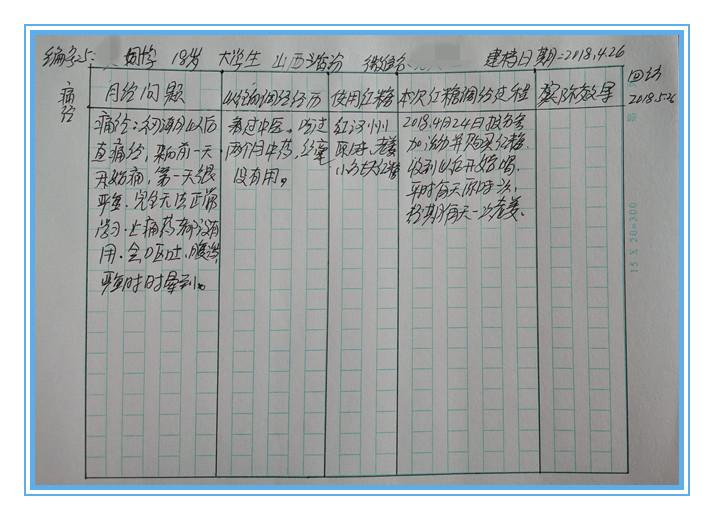 编号25: 同学 18岁 大学生 山西省 微信名 建档日期=2018.4.26
痛经
月经问题
以往的调经经历
使用红糖
本次红糖调经过程
实际效果
回访
2018.5.26
痛经:初潮以后
直痛经,来前一天
开始痛,第一天很
严重,完全无法正常
学习.止痛药都没有
用.会呕吐、腹泻
严重时时晕倒。
看过中医。喝过
两个月中药,丝毫
没有用。
红河州
原味.老姜
小方块红糖
2018.4月24日报名参
加活动并购买红糖
收到以后开始喝.
平时每天原味一次,
经期每天一次老姜.
15 X 20=300